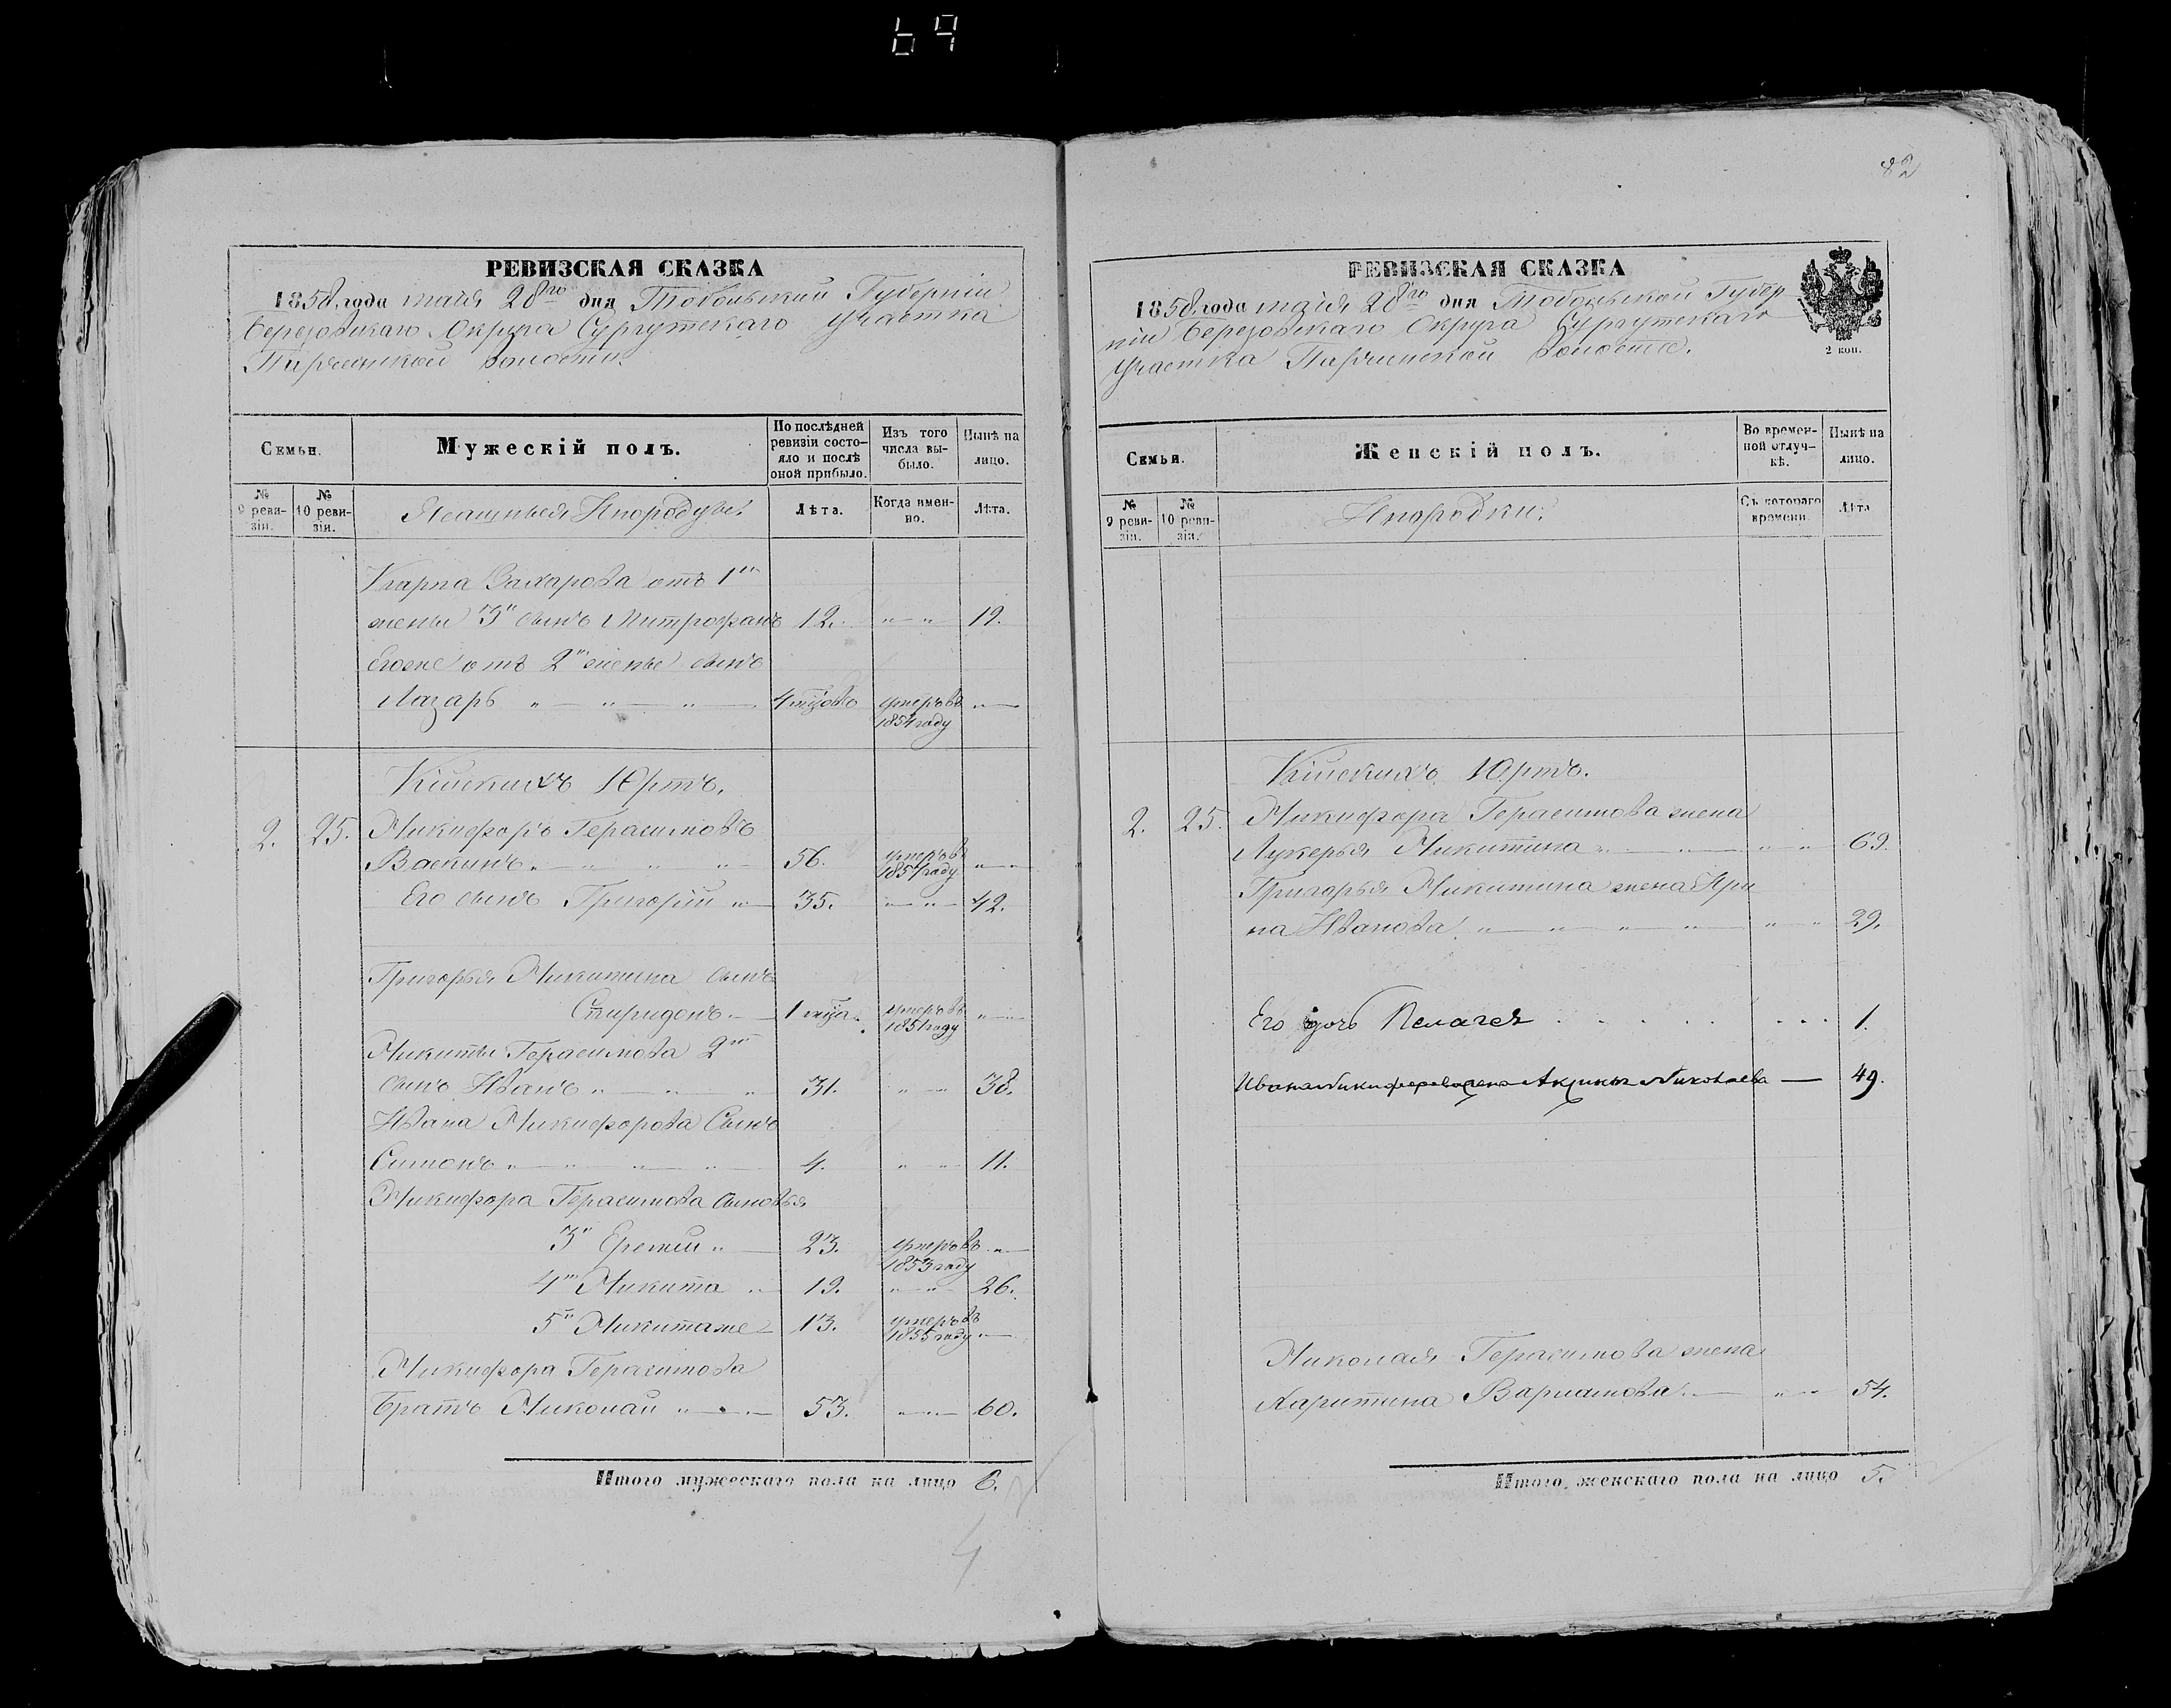 69
82
РЕВИЗСКАЯ СКАЗКА
1858 года маія 28го дня Тобольской Губерніи
Березовскаго Округа Сургутскаго участка
волости.
Семьи.
Мужескій полъ.
По послѣдней ревизіи состояло и послѣ оной прибыло.
Изъ того числа выбыло.
Нынѣ на лицо.
№ 9 ревизіи.
№ 10 ревизіи.
Ясашныя Инородцы.
Лѣта.
Когда именно.
Лѣта.
Карпа Захарова отъ 1й
жены 3й сынъ Митрофанъ 12. " — " 19.
Егоже отъ 2й жены сынъ
Лазарь " — " — " — 4 умеръ въ 1854 году " —
Юртъ.
2. 25. Никифоръ Герасимовъ
" — " " " — 56. умеръ въ 1854 году " — "
Его сынъ Григорій " — 35. " — " — 42.
Григорья Никитина сынъ
Спиридонъ — 1 мѣца. умеръ въ 1851 году " —
Никиты Герасимова 2й
сынъ Иванъ " — " — " 31. " — 38.
Ивана Никифорова Сынъ
Симонъ " — " — " — " 4. " — " 11.
Никифора Герасимова сыновья
3й Еремѣй " — 23. умеръ въ 1853 году " —
4й Никита " 19. " — " 26.
5й Никитаже — 13. умеръ въ 1855 году " —
Никифора Герасимова
Братъ Николай " — " — 53. " — " 60.
Итого мужескаго пола на лицо 6.
4
РЕВИЗСКАЯ СКАЗКА
1858 года маія 28го дня Тобольской Губер
ніи Березовскаго Округа Сургутскаго
участка волости.
2 коп.
Семья.
Женскій полъ.
Во временной отлучкѣ.
Нынѣ на лицо.
№ 9 ревизіи.
№ 10 ревизіи.
Инородки.
Съ котораго времени.
Лѣта
Юртъ.
2. 25. Никифора Герасимова жена
Лукерья Никитина " — " — " " 69.
Григорья Никитина жена Ири
на Иванова " — " — " — " — " — " 29.
Его дочь Пелагея . . . . . . . . . 1.
Ивана Никифорова жена Акулина Николаева — 49.
Николая Герасимова жена
Харитина Варламова. — " — " 54.
Итого женскаго пола на лицо 5.